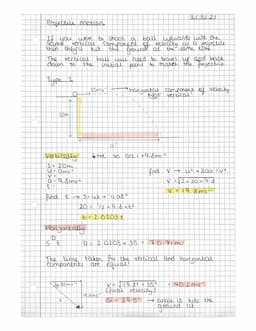 Projectile motion
If you were to shoot a ball upwards with the
same vertical component of velocity as a projectile
then they'll hit the ground at the same time
The vertical ball will need to travel up and back
down to the initial point to match the projectile
Type 1
horizontal component of velocity
not vertical
20m
Vertically
↓+ve so acc = +9.8ms⁻²
S = 20m
U = 0ms⁻¹
V =
a = 9.8ms⁻²
t =
find V → u² + 2as = v²
find t → s = ut + ½at²
t = 2.0203s
Horizontally
D
S t
D = 2.0203 × 35 = 70.71m
The time taken for the vertical and horizontal
components are equal
(final velocity)
→ angle it hits the
ground at